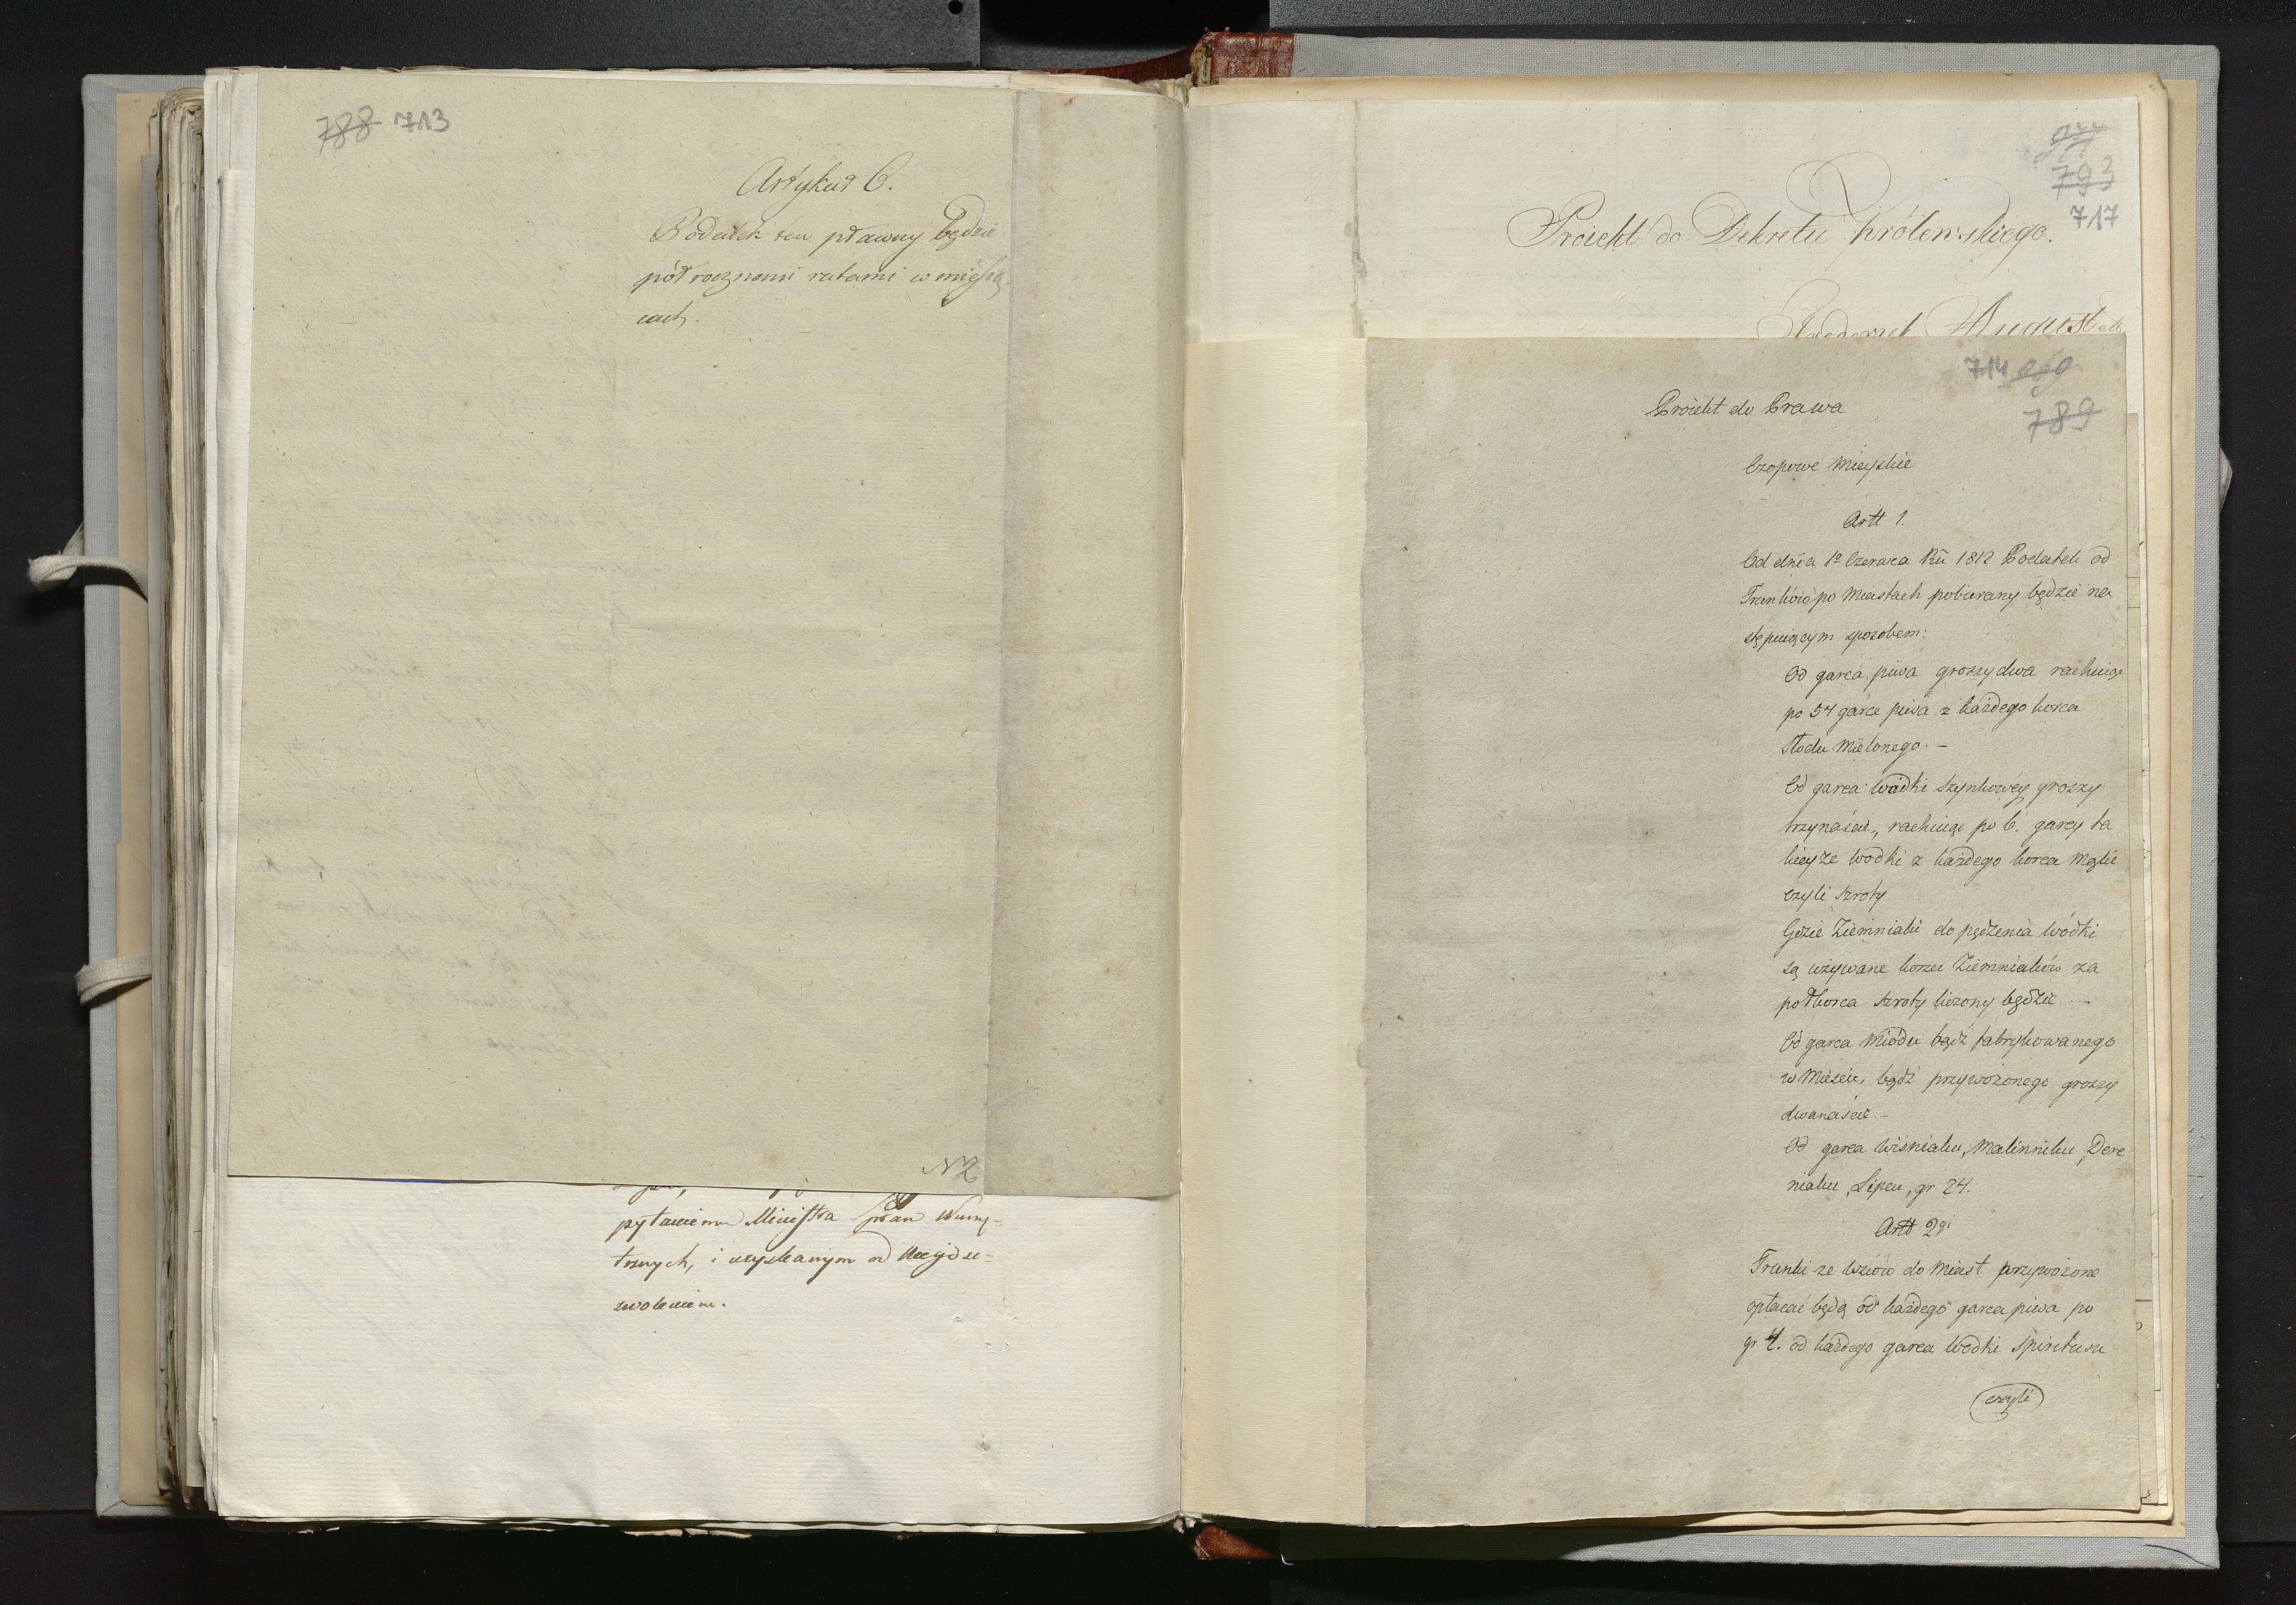 788 713
Artykuł 6.
Podatek ten płacony będzie
półrocznemi ratami w miesią-
cach.
NZ
pytaniem Ministra Spraw Wewnę-
trznych, i uzyskanym od Niego ze-
zwoleniem.
793
717
Proiekt do Dekretu Królewskiego.
Frederyk August etc
714
789
Proiekt do Prawa
Czopowe Mieyskie
Artt 1.
Od dnia 1º Czerwca Rũ 1812 Podatek od
Trunków po Miastach pobierany będzie na
stępuiącym sposobem:
Od garca piwa groszy dwa rachuiąc
po 54 garce piwa z każdego korca
słodu mielonego. –
Od garca wódki szynkowey groszy
trzynaście, rachuiąc po 6. garcy ta
kieyże wodki z każdego korca Mąki
czyli szroty
Gdzie Ziemniaki do pędzenia wódki
są używane korzec Ziemniaków za
pół korca szroty liczony będzie –
Od garca Miodu bądź fabrykowanego
w Mieście, bądź przywożonego groszy
dwanaście. –
Od garca Wiśniaku, Malinniku, Dere
niaku, Lipcu, gr 24.
Artt 2gi
Trunki ze Wsiów do Miast przywożone
opłacać będą od każdego garca piwa po
gr 4. od każdego garca wodki spiritusu
czyli